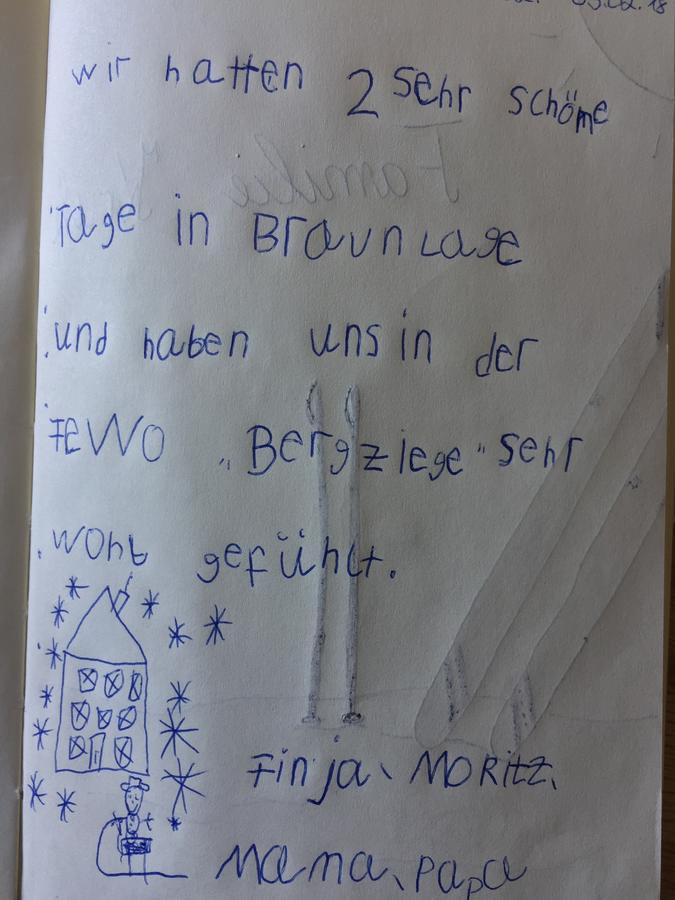 wir hatten 2 sehr schöne
Tage in Braunlage
und haben uns in der
FeWo „Bergziege“ sehr
wohl gefühlt.
Finja, Moritz,
Mama, Papa